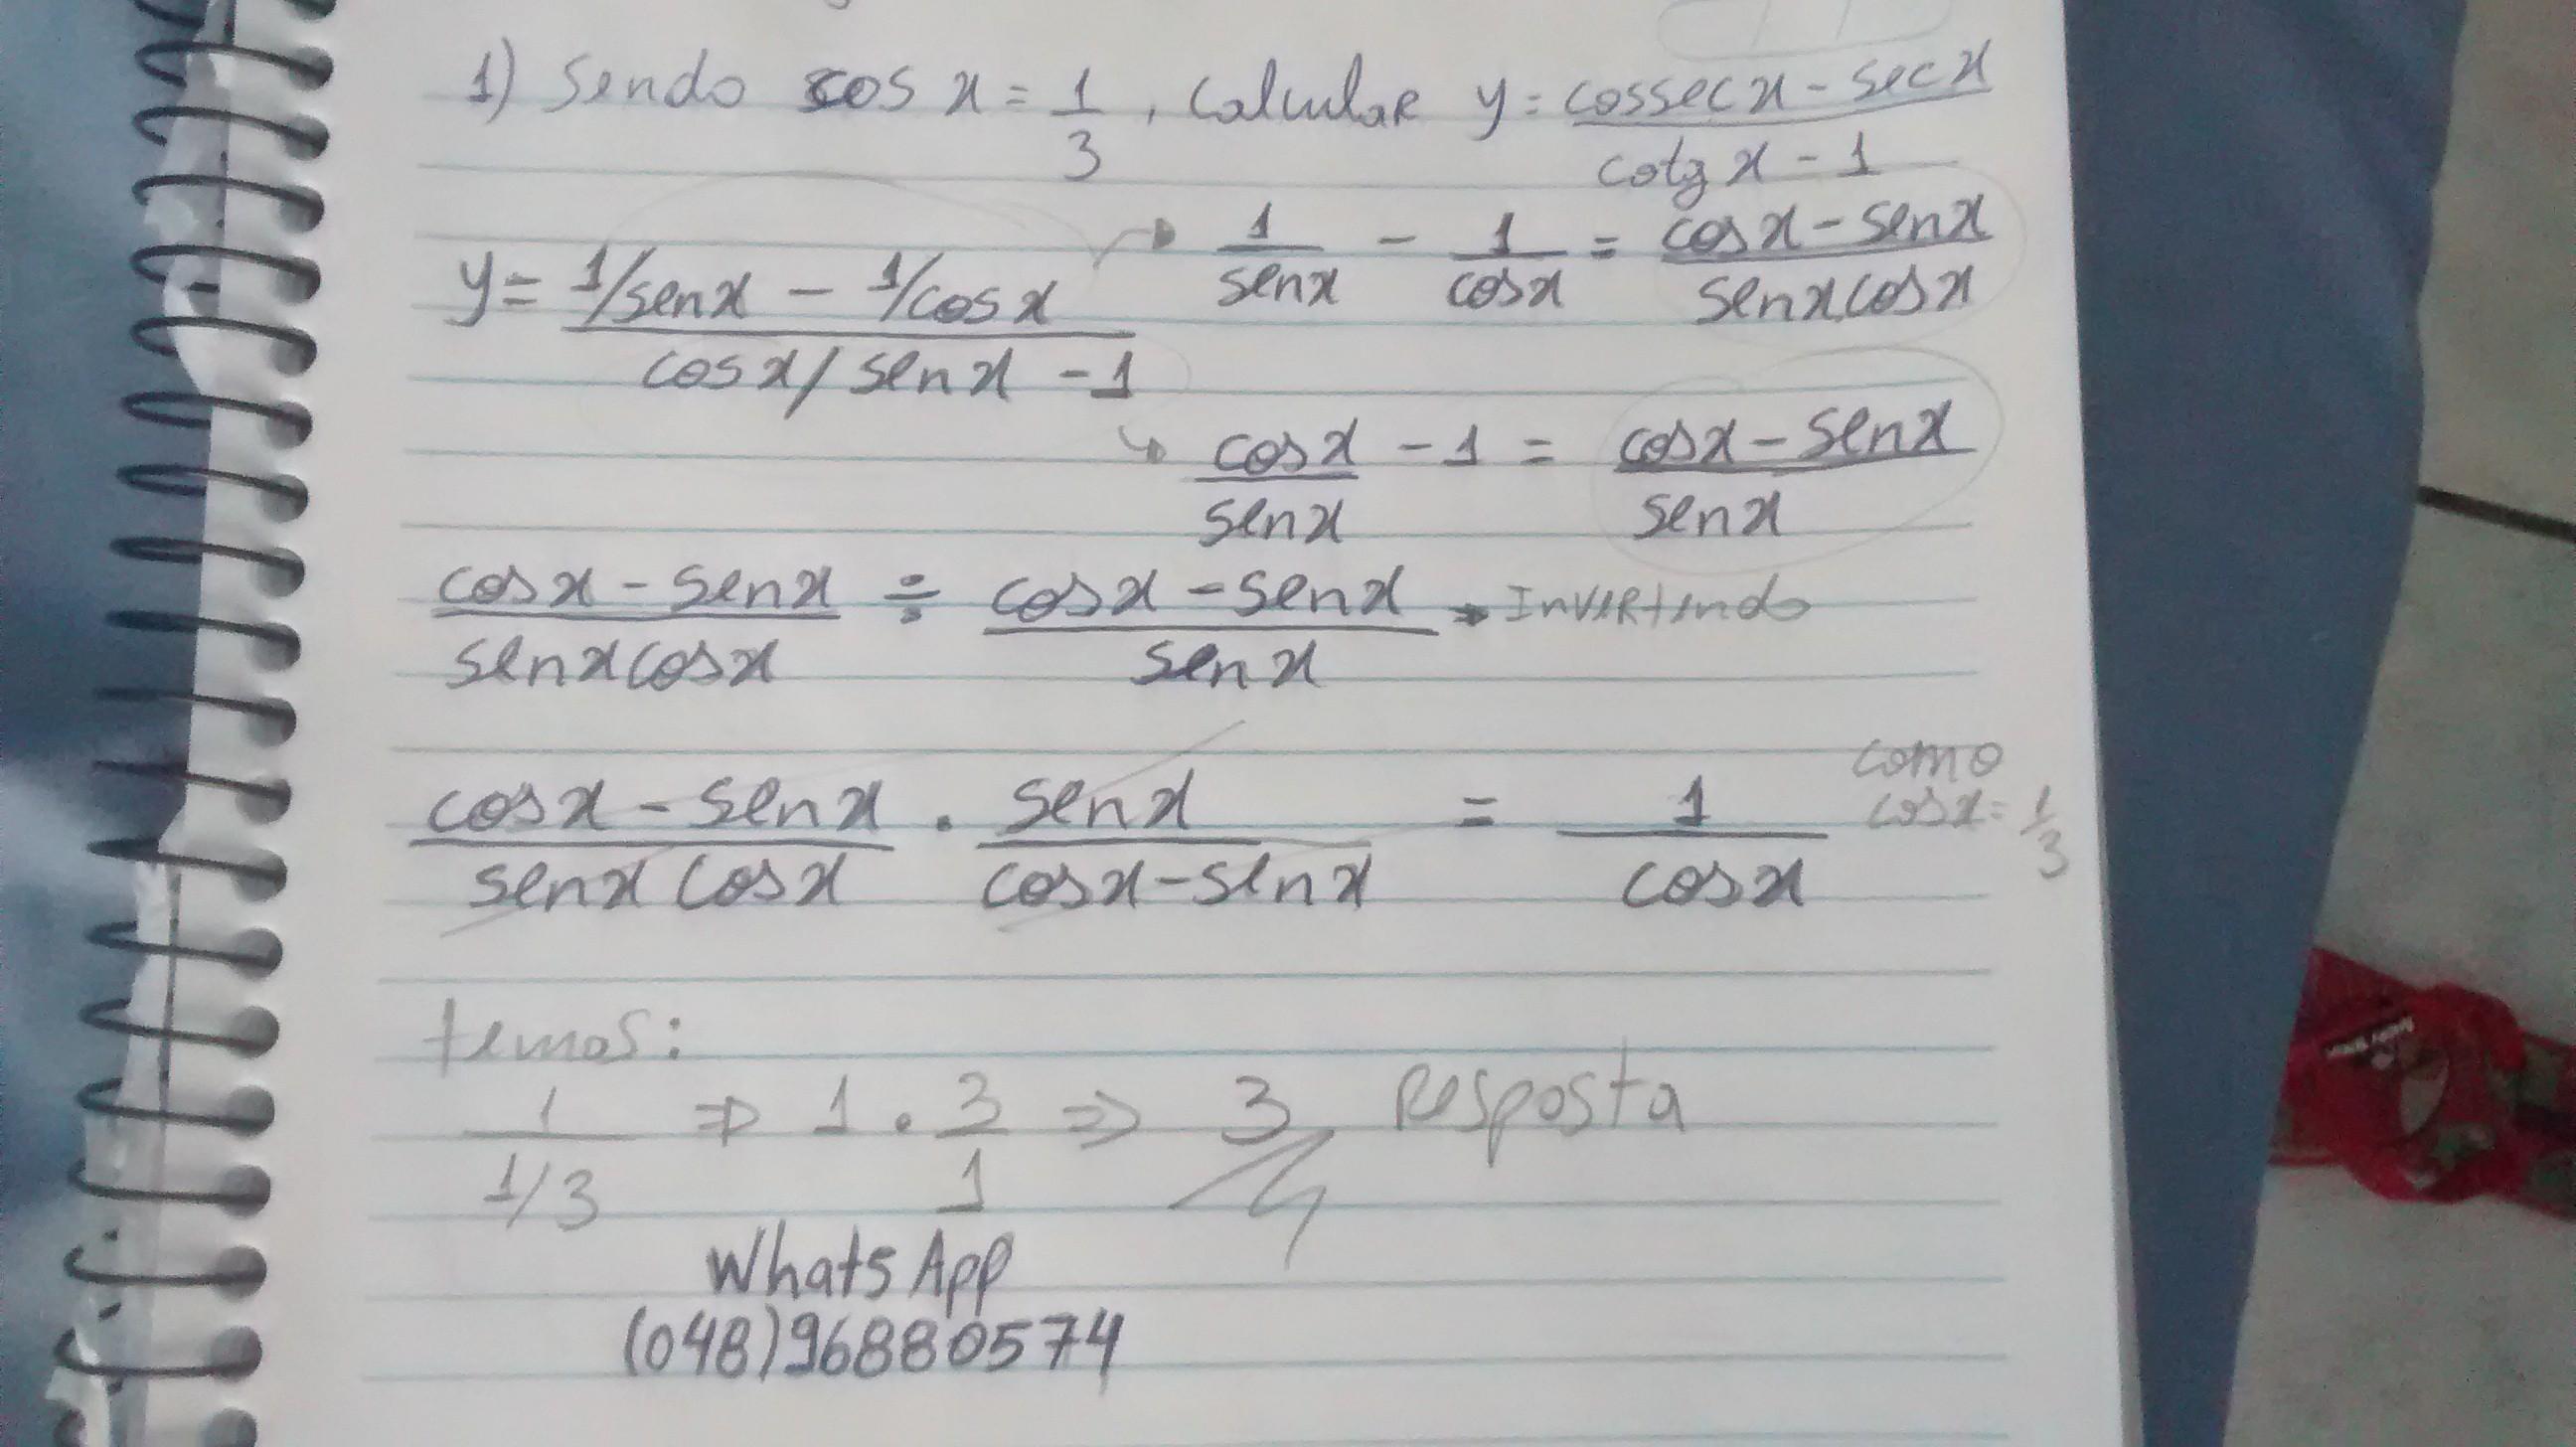 1) Sendo cos x = 1/3, calcular y = cossec x - sec x / cotg x - 1
y = 1/sen x - 1/cos x / cos x / sen x - 1
→ 1/sen x - 1/cos x = cos x - sen x / sen x cos x
↳ cos x / sen x - 1 = cos x - sen x / sen x
cos x - sen x / sen x cos x ÷ cos x - sen x / sen x → Invertendo
cos x - sen x / sen x cos x . sen x / cos x - sen x = 1 / cos x como cos x = 1/3
temos:
1 / 1/3 ⇒ 1 . 3/1 ⇒ 3 Resposta
Whats App
(048)96880574